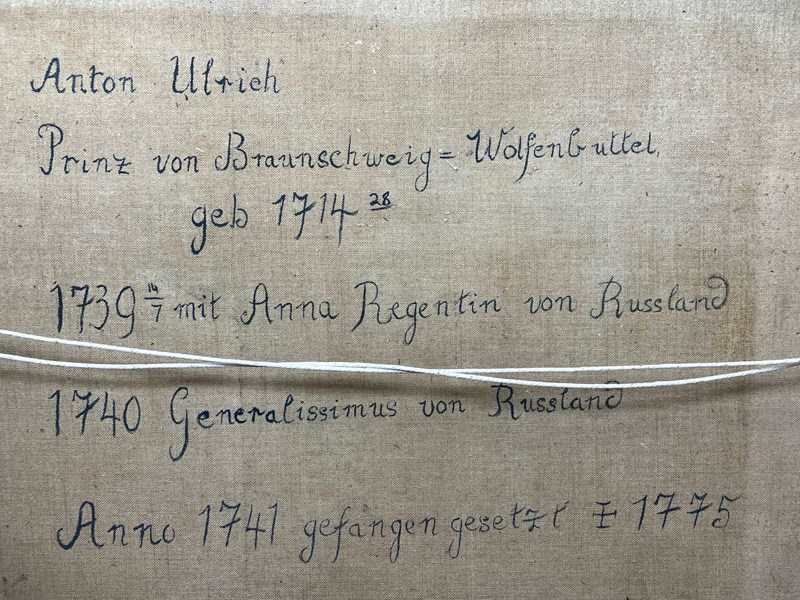 Anton Ulrich
Prinz von Braunschweig = Wolfenbuttel.
geb 1714 28
1739 14/7 mit Anna Regentin von Russland
1740 Generalissimus von Russland
Anno 1741 gefangen gesetzt ‡ 1775